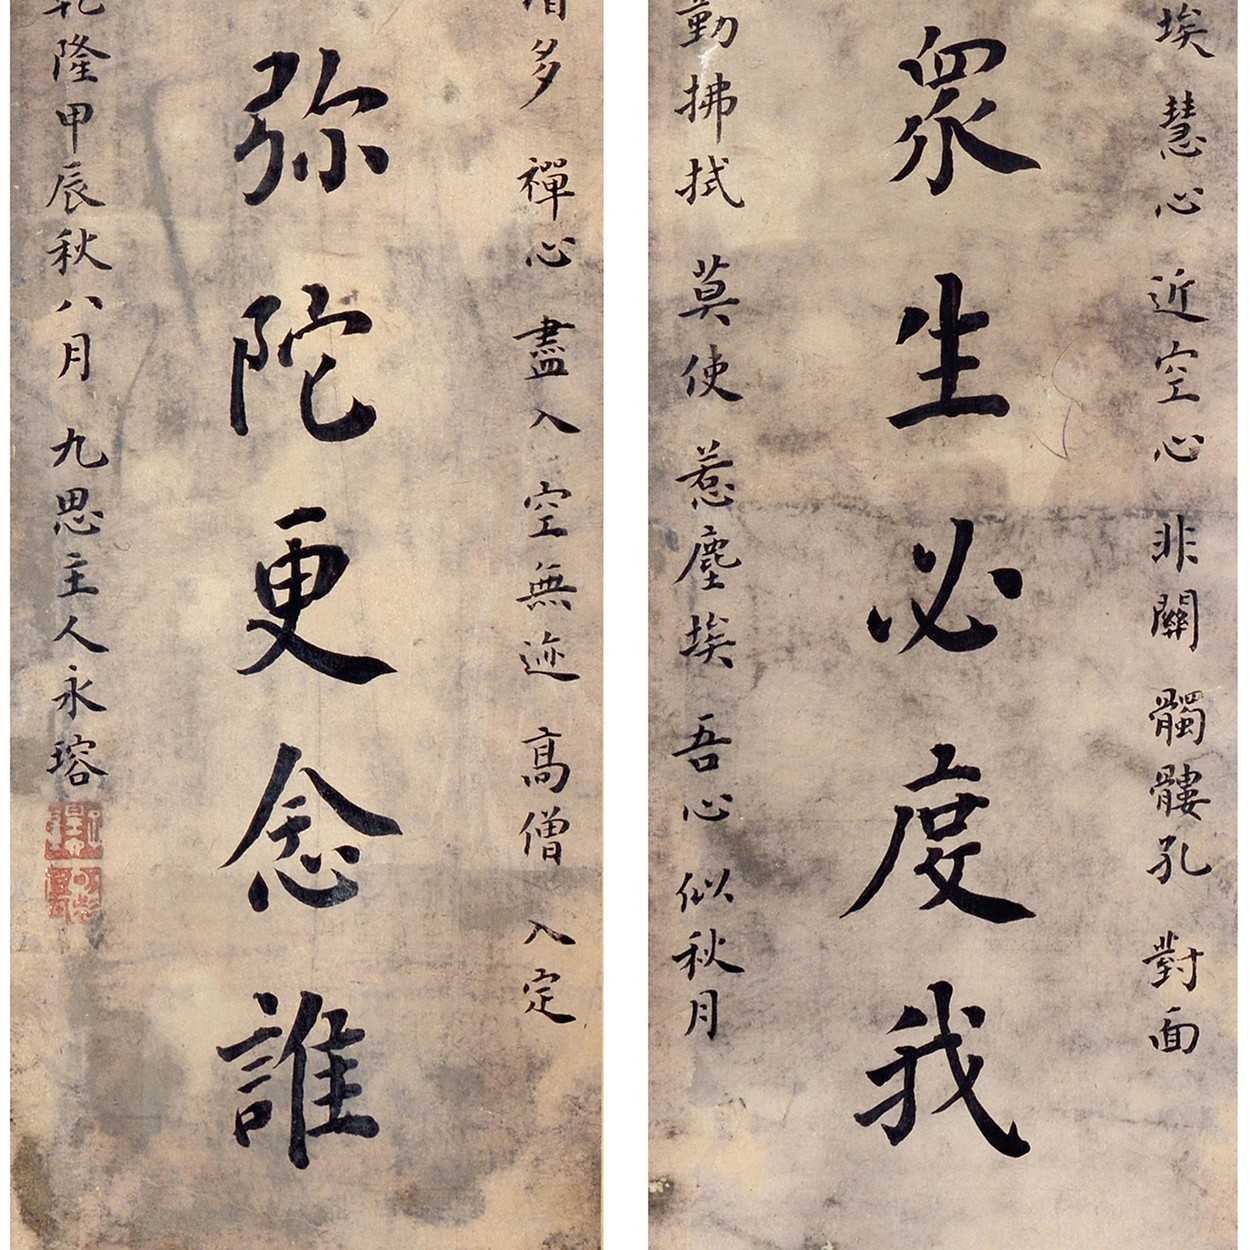 埃慧心近空心非關髑髏孔對面
眾生必度我
勤拂拭莫使惹塵埃吾心似秋月
多禪心盡入空無迹高僧入定
弥陀更念誰
乾隆甲辰秋八月九思主人永瑢